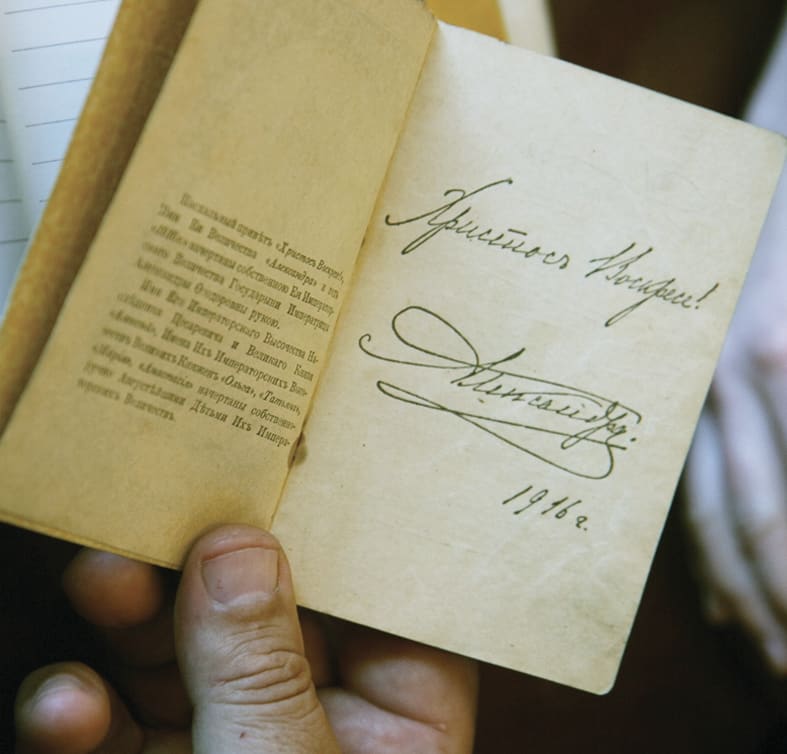 Пасхальный привѣтъ «Христосъ Воскресе!»,
Имя Ея Величества «Александра» и годъ
«1916г.» начертаны собственною Ея Император-
скаго Величества Государыни Императрицы
Александры Ѳеодоровны рукою.
Имя Его Императорскаго Высочества На-
слѣдника Цесаревича и Великаго Князя
«Алексѣй», Имена Ихъ Императорскихъ Высо-
чествъ Великихъ Княженъ «Ольга», «Татьяна»,
«Марія», «Анастасія» начертаны собственно-
ручно Августѣйшими Дѣтьми Ихъ Импера-
торскихъ Величествъ.
Христосъ Воскресе!
Александра.
1916 г.